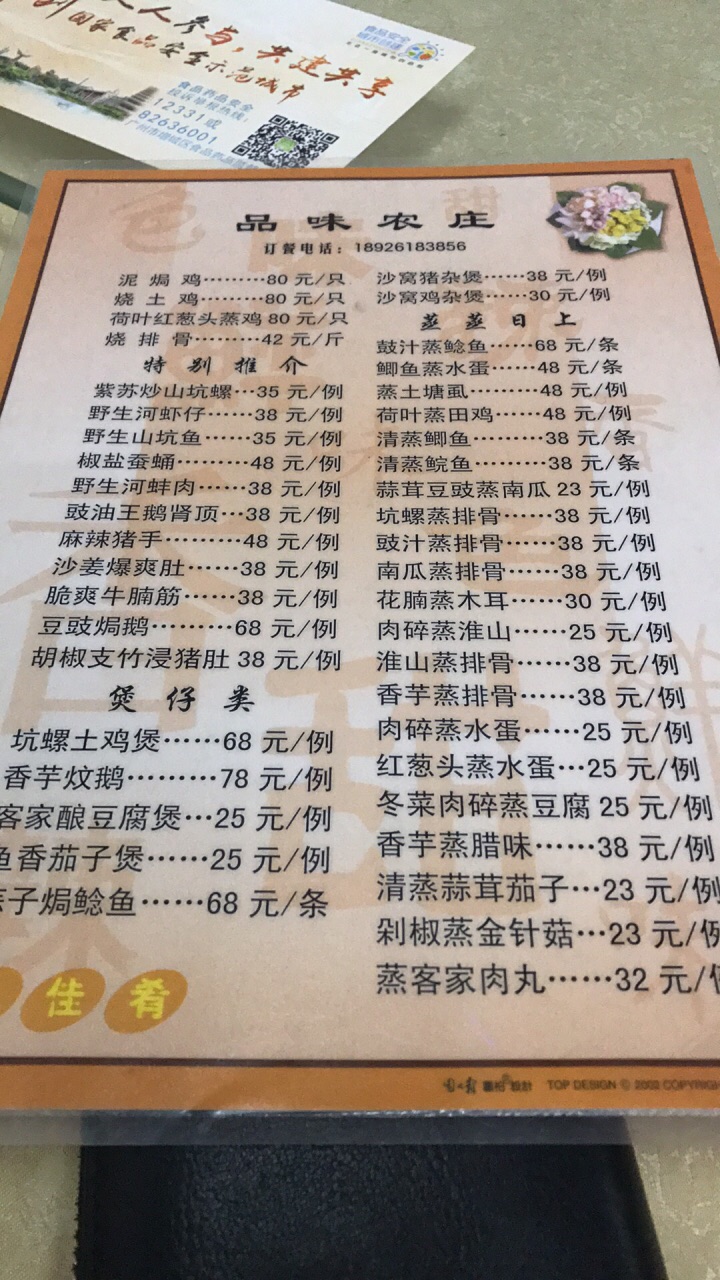 人人参与，共建共享
国家食品安全示范城市
食品药品安全
投诉举报热线：
12331或
82636001
食品安全
品味农庄
订餐电话：18926183856
泥焗鸡………80 元/只
烧土鸡………80 元/只
荷叶红葱头蒸鸡 80 元/只
烧排骨………42 元/斤
特别推介
紫苏炒山坑螺…35 元/例
野生河虾仔……38 元/例
野生山坑鱼……35 元/例
椒盐蚕蛹………48 元/例
野生河蚌肉……38 元/例
豉油王鹅肾顶…38 元/例
麻辣猪手………48 元/例
沙姜爆爽肚……38 元/例
脆爽牛腩筋……38 元/例
豆豉焗鹅………68 元/例
胡椒支竹浸猪肚 38 元/例
煲仔类
坑螺土鸡煲……68 元/例
香芋炆鹅………78 元/例
客家酿豆腐煲…25 元/例
鱼香茄子煲……25 元/例
子焗鲶鱼……68 元/条
佳肴
沙窝猪杂煲……38 元/例
沙窝鸡杂煲……30 元/例
蒸蒸日上
鼓汁蒸鲶鱼……68 元/条
鲫鱼蒸水蛋……48 元/条
蒸土塘虱………48 元/例
荷叶蒸田鸡……48 元/例
清蒸鲫鱼………38 元/条
清蒸鲩鱼………38 元/条
蒜茸豆豉蒸南瓜 23 元/例
坑螺蒸排骨……38 元/例
豉汁蒸排骨……38 元/例
南瓜蒸排骨……38 元/例
花腩蒸木耳……30 元/例
肉碎蒸淮山……25 元/例
淮山蒸排骨……38 元/例
香芋蒸排骨……38 元/例
肉碎蒸水蛋……25 元/例
红葱头蒸水蛋…25 元/例
冬菜肉碎蒸豆腐 25 元/例
香芋蒸腊味……38 元/例
清蒸蒜茸茄子…23 元/例
剁椒蒸金针菇…23 元/例
蒸客家肉丸……32 元/例
設計 TOP DESIGN © 2002 COPYRIGH